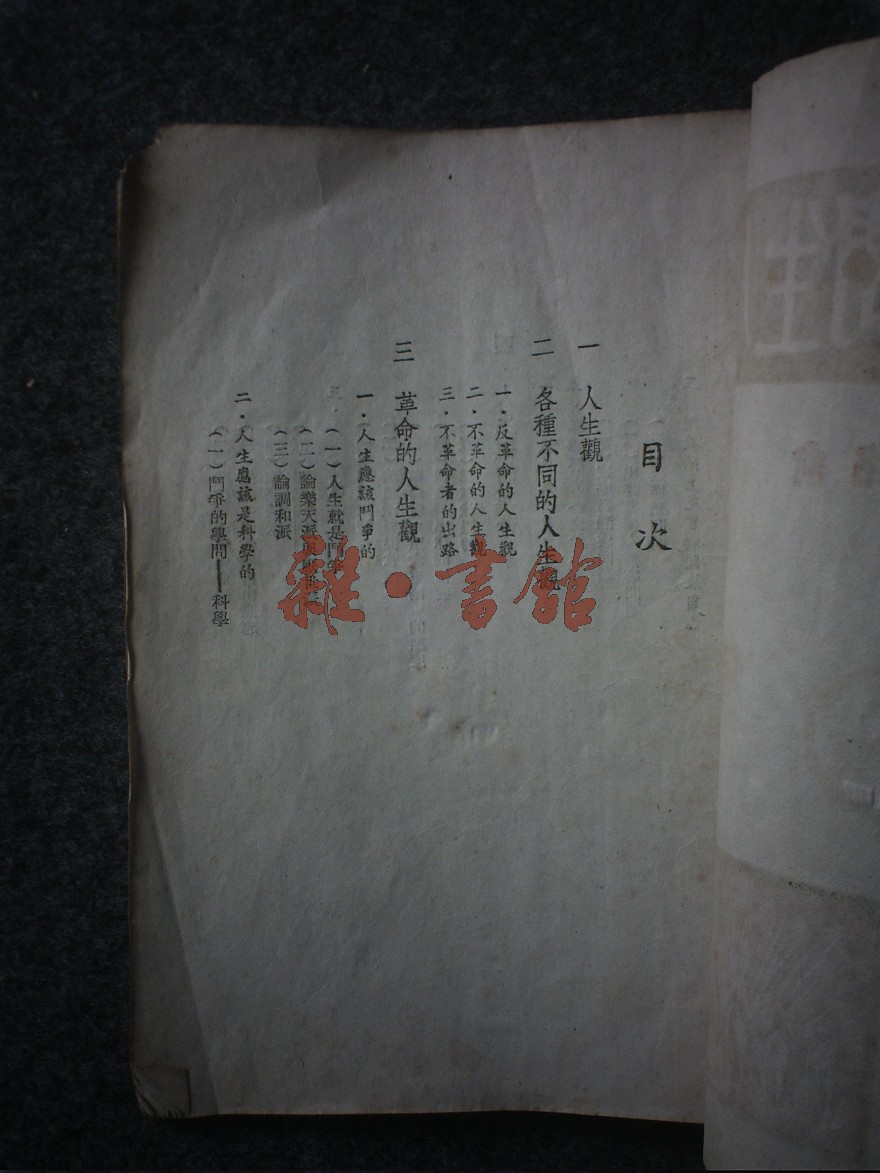 目次
一 人生觀
二 各種不同的人生觀
一·反革命的人生觀
二·不革命的人生觀
三·不革命者的出路
三 革命的人生觀
一·人生應該鬥爭的
(一)人生就是鬥爭
(二)論樂天派
(三)論調和派
二·人生應該是科學的
(一)鬥爭的學問——科學
雜·書館